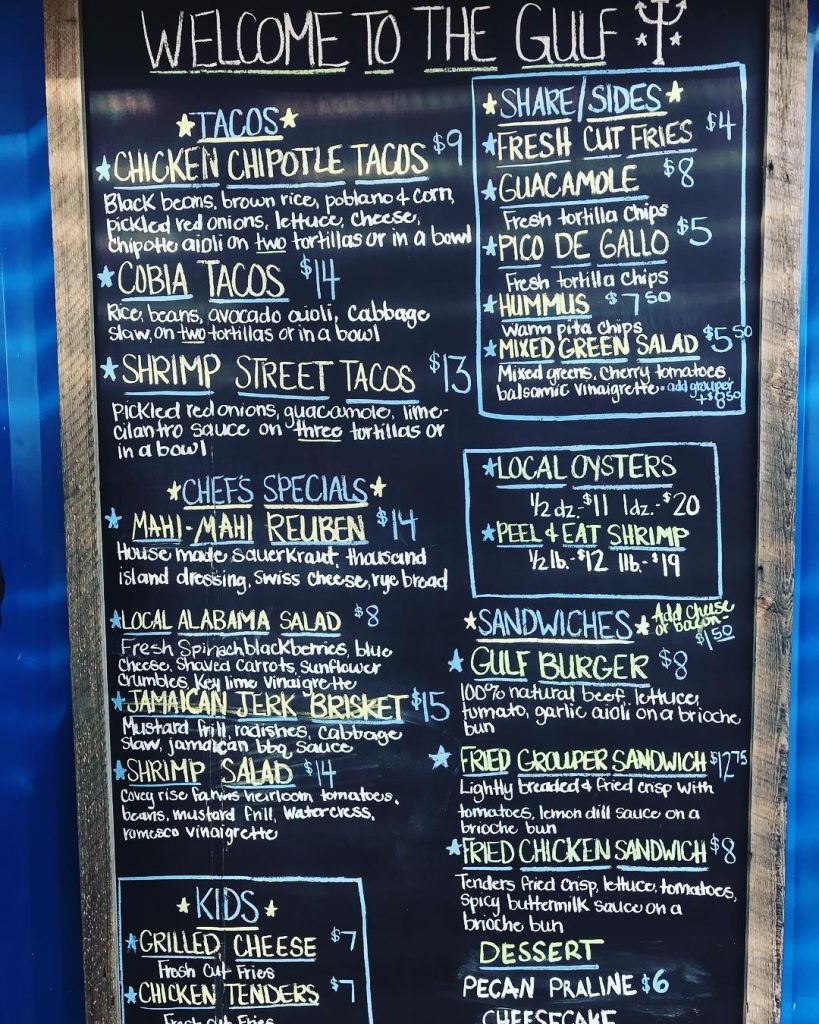 WELCOME TO THE GULF
TACOS
CHICKEN CHIPOTLE TACOS $9
Black beans, brown rice, poblano & corn,
pickled red onions, lettuce, cheese,
chipotle aioli on two tortillas or in a bowl
COBIA TACOS $14
Rice, beans, avocado aioli, cabbage
slaw, on two tortillas or in a bowl
SHRIMP STREET TACOS $13
Pickled red onions, guacamole, lime-
cilantro sauce on three tortillas or
in a bowl
CHEF'S SPECIALS
MAHI-MAHI REUBEN $14
House made sauerkraut, thousand
island dressing, swiss cheese, rye bread
LOCAL ALABAMA SALAD $8
Fresh Spinach blackberries, blue
cheese, shaved carrots, sunflower
crumbles, key lime vinaigrette
JAMAICAN JERK BRISKET $15
Mustard frill, radishes, cabbage
slaw, jamaican bbq sauce
SHRIMP SALAD $14
Covey rise farms heirloom tomatoes,
beans, mustard frill, watercress,
romesco vinaigrette
KIDS
GRILLED CHEESE $7
Fresh Cut Fries
CHICKEN TENDERS $7
Fresh cut Fries
SHARE/SIDES
FRESH CUT FRIES $4
GUACAMOLE $8
Fresh tortilla chips
PICO DE GALLO $5
Fresh tortilla chips
HUMMUS $7 50
warm pita chips
MIXED GREEN SALAD $5 50
Mixed greens, cherry tomatoes
balsamic vinaigrette - add grouper
+$8 50
LOCAL OYSTERS
1/2 dz.-$11 1dz.-$20
PEEL & EAT SHRIMP
1/2 lb.-$12 1lb.-$19
SANDWICHES Add cheese
or bacon-
$1 50
GULF BURGER $8
100% natural beef, lettuce,
tomato, garlic aioli on a brioche
bun
FRIED GROUPER SANDWICH $12 75
Lightly breaded & fried crisp with
tomatoes, lemon dill sauce on a
brioche bun
FRIED CHICKEN SANDWICH $8
Tenders fried crisp, lettuce, tomatoes,
spicy buttermilk sauce on a
brioche bun
DESSERT
PECAN PRALINE $6
CHEESECAKE